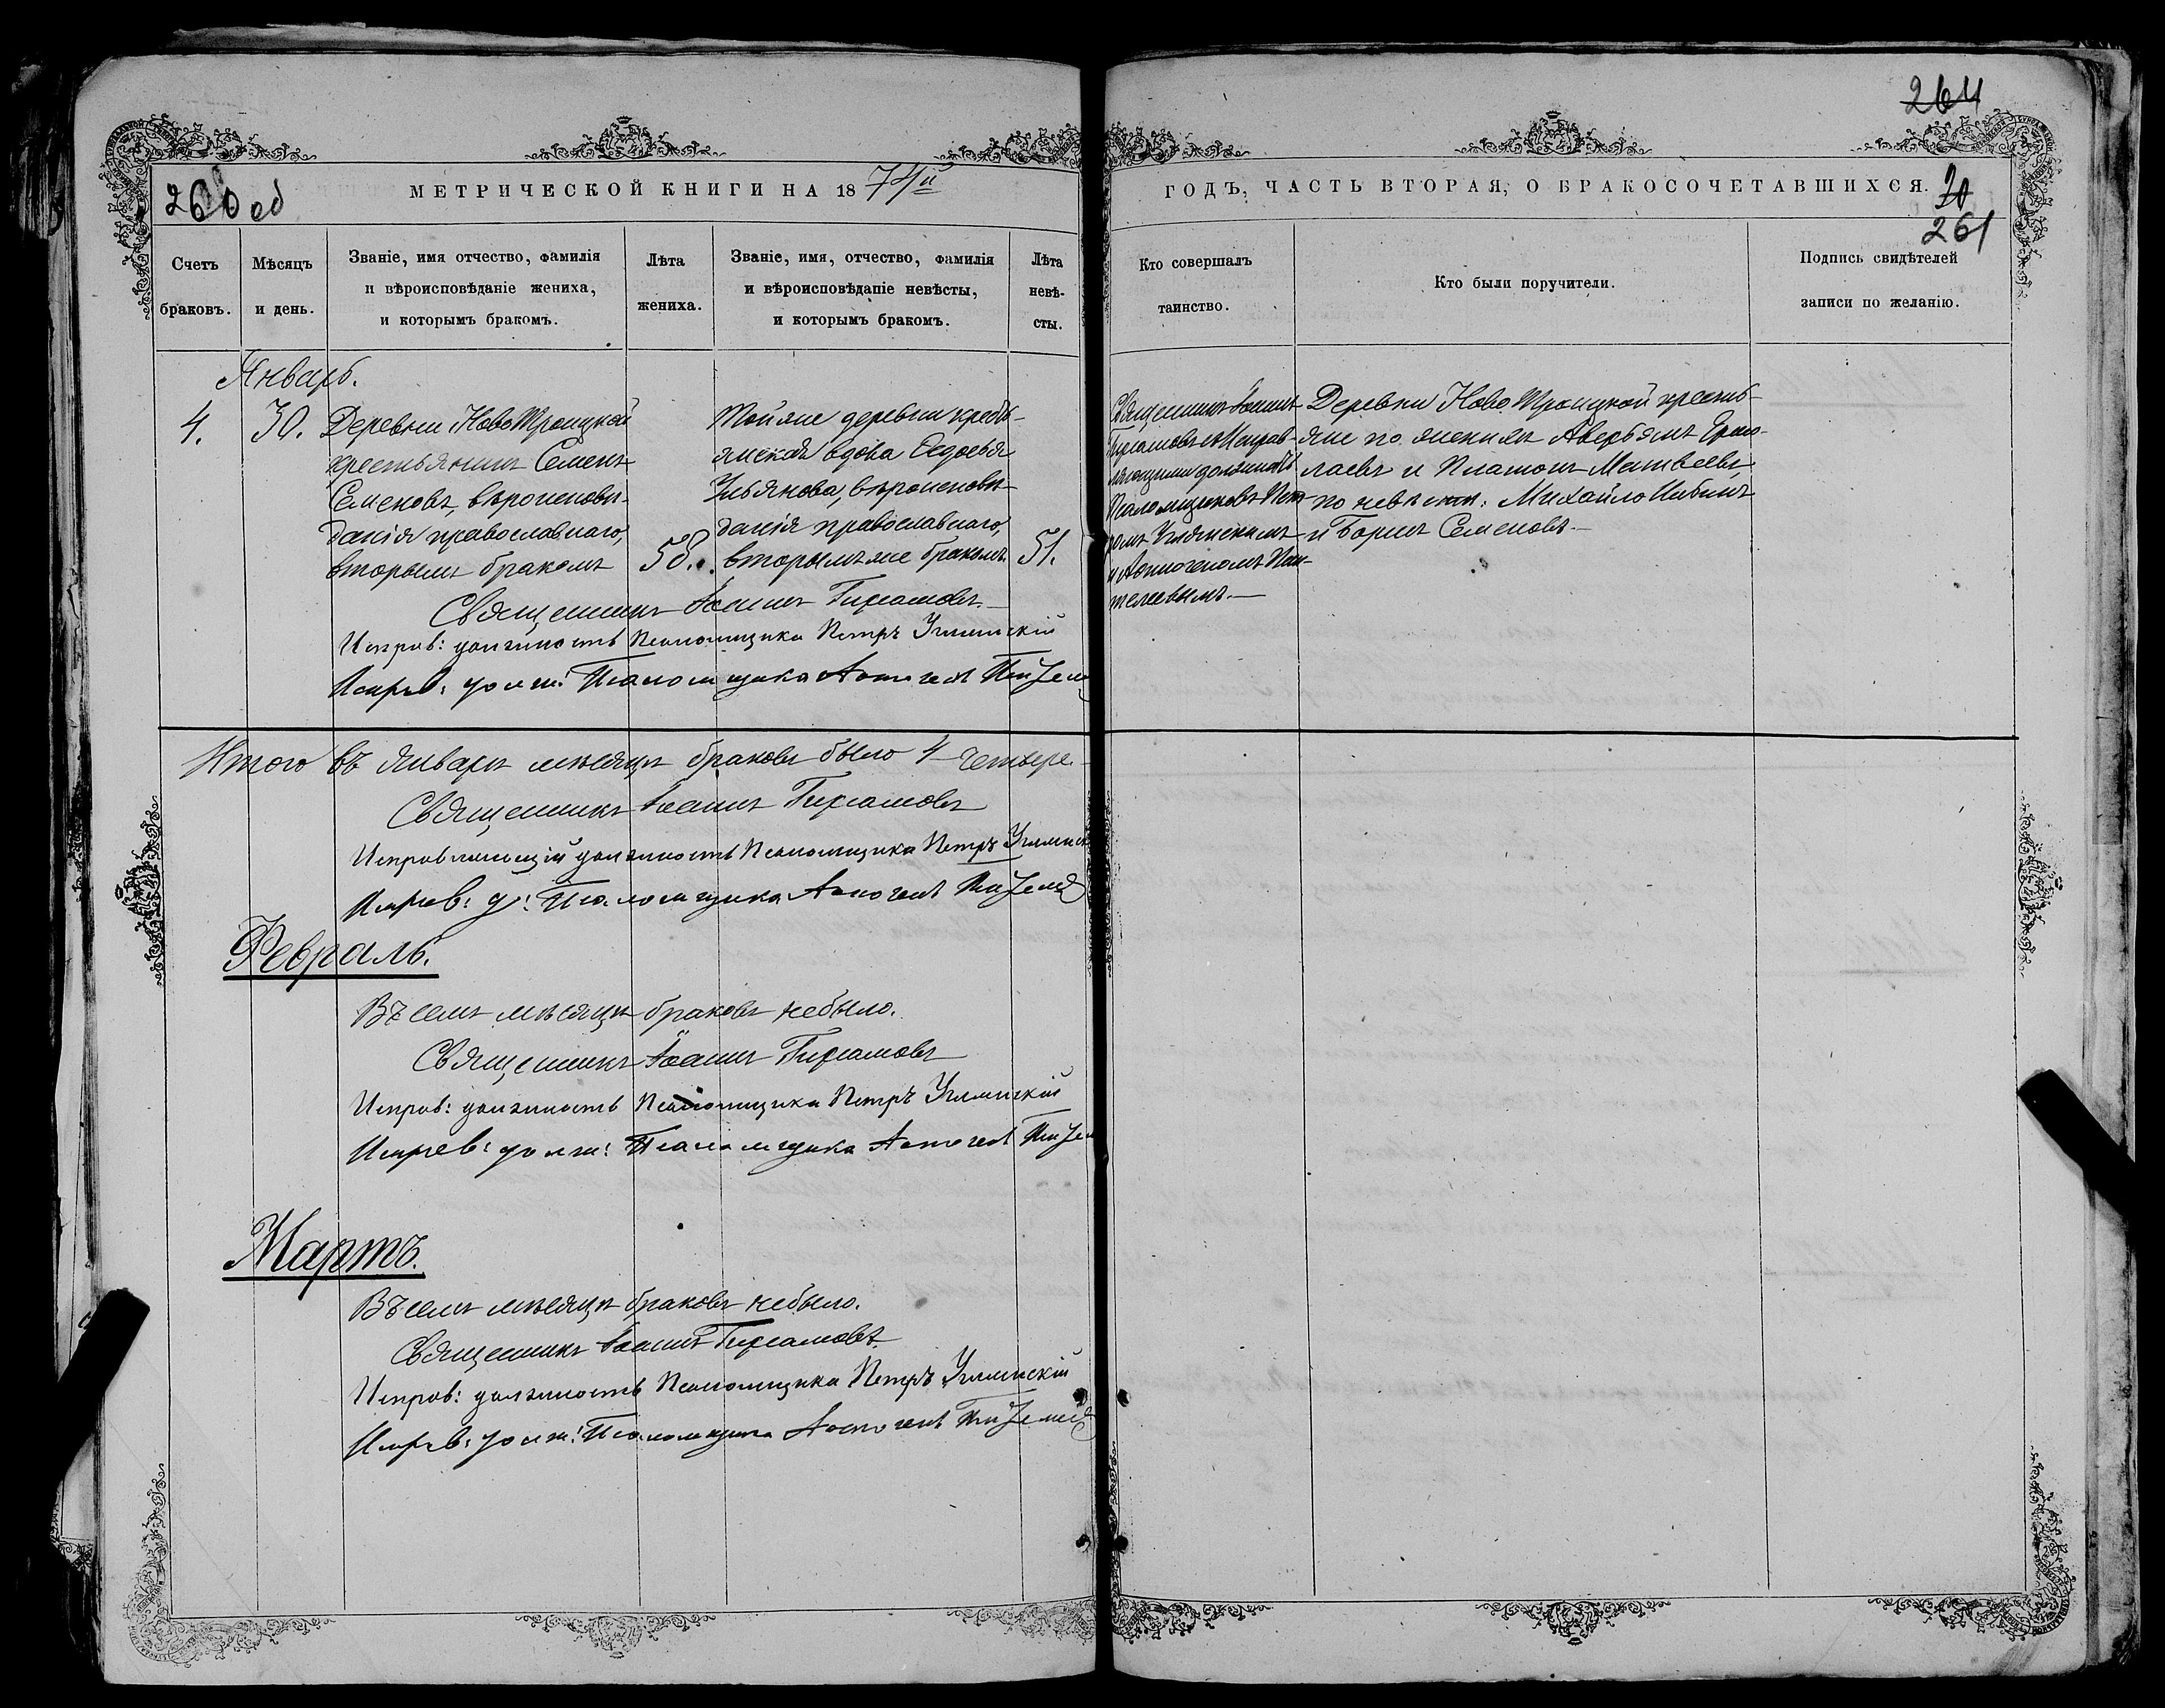 264
260 об
МЕТРИЧЕСКОЙ КНИГИ НА 1874й
ГОДЪ, ЧАСТЬ ВТОРАЯ, О БРАКОСОЧЕТАВШИХСЯ.
261
Счетъ
браковъ.
Мѣсяцъ
и день.
Званіе, имя отчество, фамилія
и вѣроисповѣданіе жениха,
и которымъ бракомъ.
Лѣта
жениха.
Званіе, имя, отчество, фамилія
и вѣроисповѣданіе невѣсты,
и которымъ бракомъ.
Лѣта
невѣ-
сты.
Кто совершалъ
таинство.
Кто были поручители.
Подпись свидѣтелей
записи по желанію.
Январь.
4.
30.
Деревни НовоТроицкой
крестьянинъ Семенъ
Семеновъ, вѣроисповѣ-
данія православнаго,
вторымъ бракомъ
58.
Той же деревни кресть-
янская вдова Федосья
Ульянова, вѣроисповѣ-
данія православнаго,
вторымъ же бракомъ.
51.
Священникъ Іоаннъ
съ Исправ-
ляющими должность
Псаломщиковъ Пет-
ромъ
и Пан-
телеевымъ.
Деревни Ново Троицкой кресть-
яне по женихѣ Аверьянъ Ермо-
лаевъ и Платонъ Матвеевъ
по невѣстѣ: Михайло
и Борисъ Семеновъ.
Священникъ Іоаннъ
Исправ: должность Псаломщика Петръ
Исправ: долж: Псаломщика
Итого въ январѣ мѣсяцѣ браковъ было 4 четыре.
Священникъ Іоаннъ
Исправляющій должность Псаломщика Петръ
Исправ: д: Псаломщика
Февраль.
Въ семъ мѣсяцѣ браковъ небыло.
Священникъ Іоаннъ
Исправ: должность Псаломщика Петръ
Исправ: долж: Псаломщика
Мартъ.
Въ семъ мѣсяцѣ браковъ небыло.
Священникъ Іоаннъ
Исправ: должность Псаломщика Петръ
Исправ: долж: Псаломщика